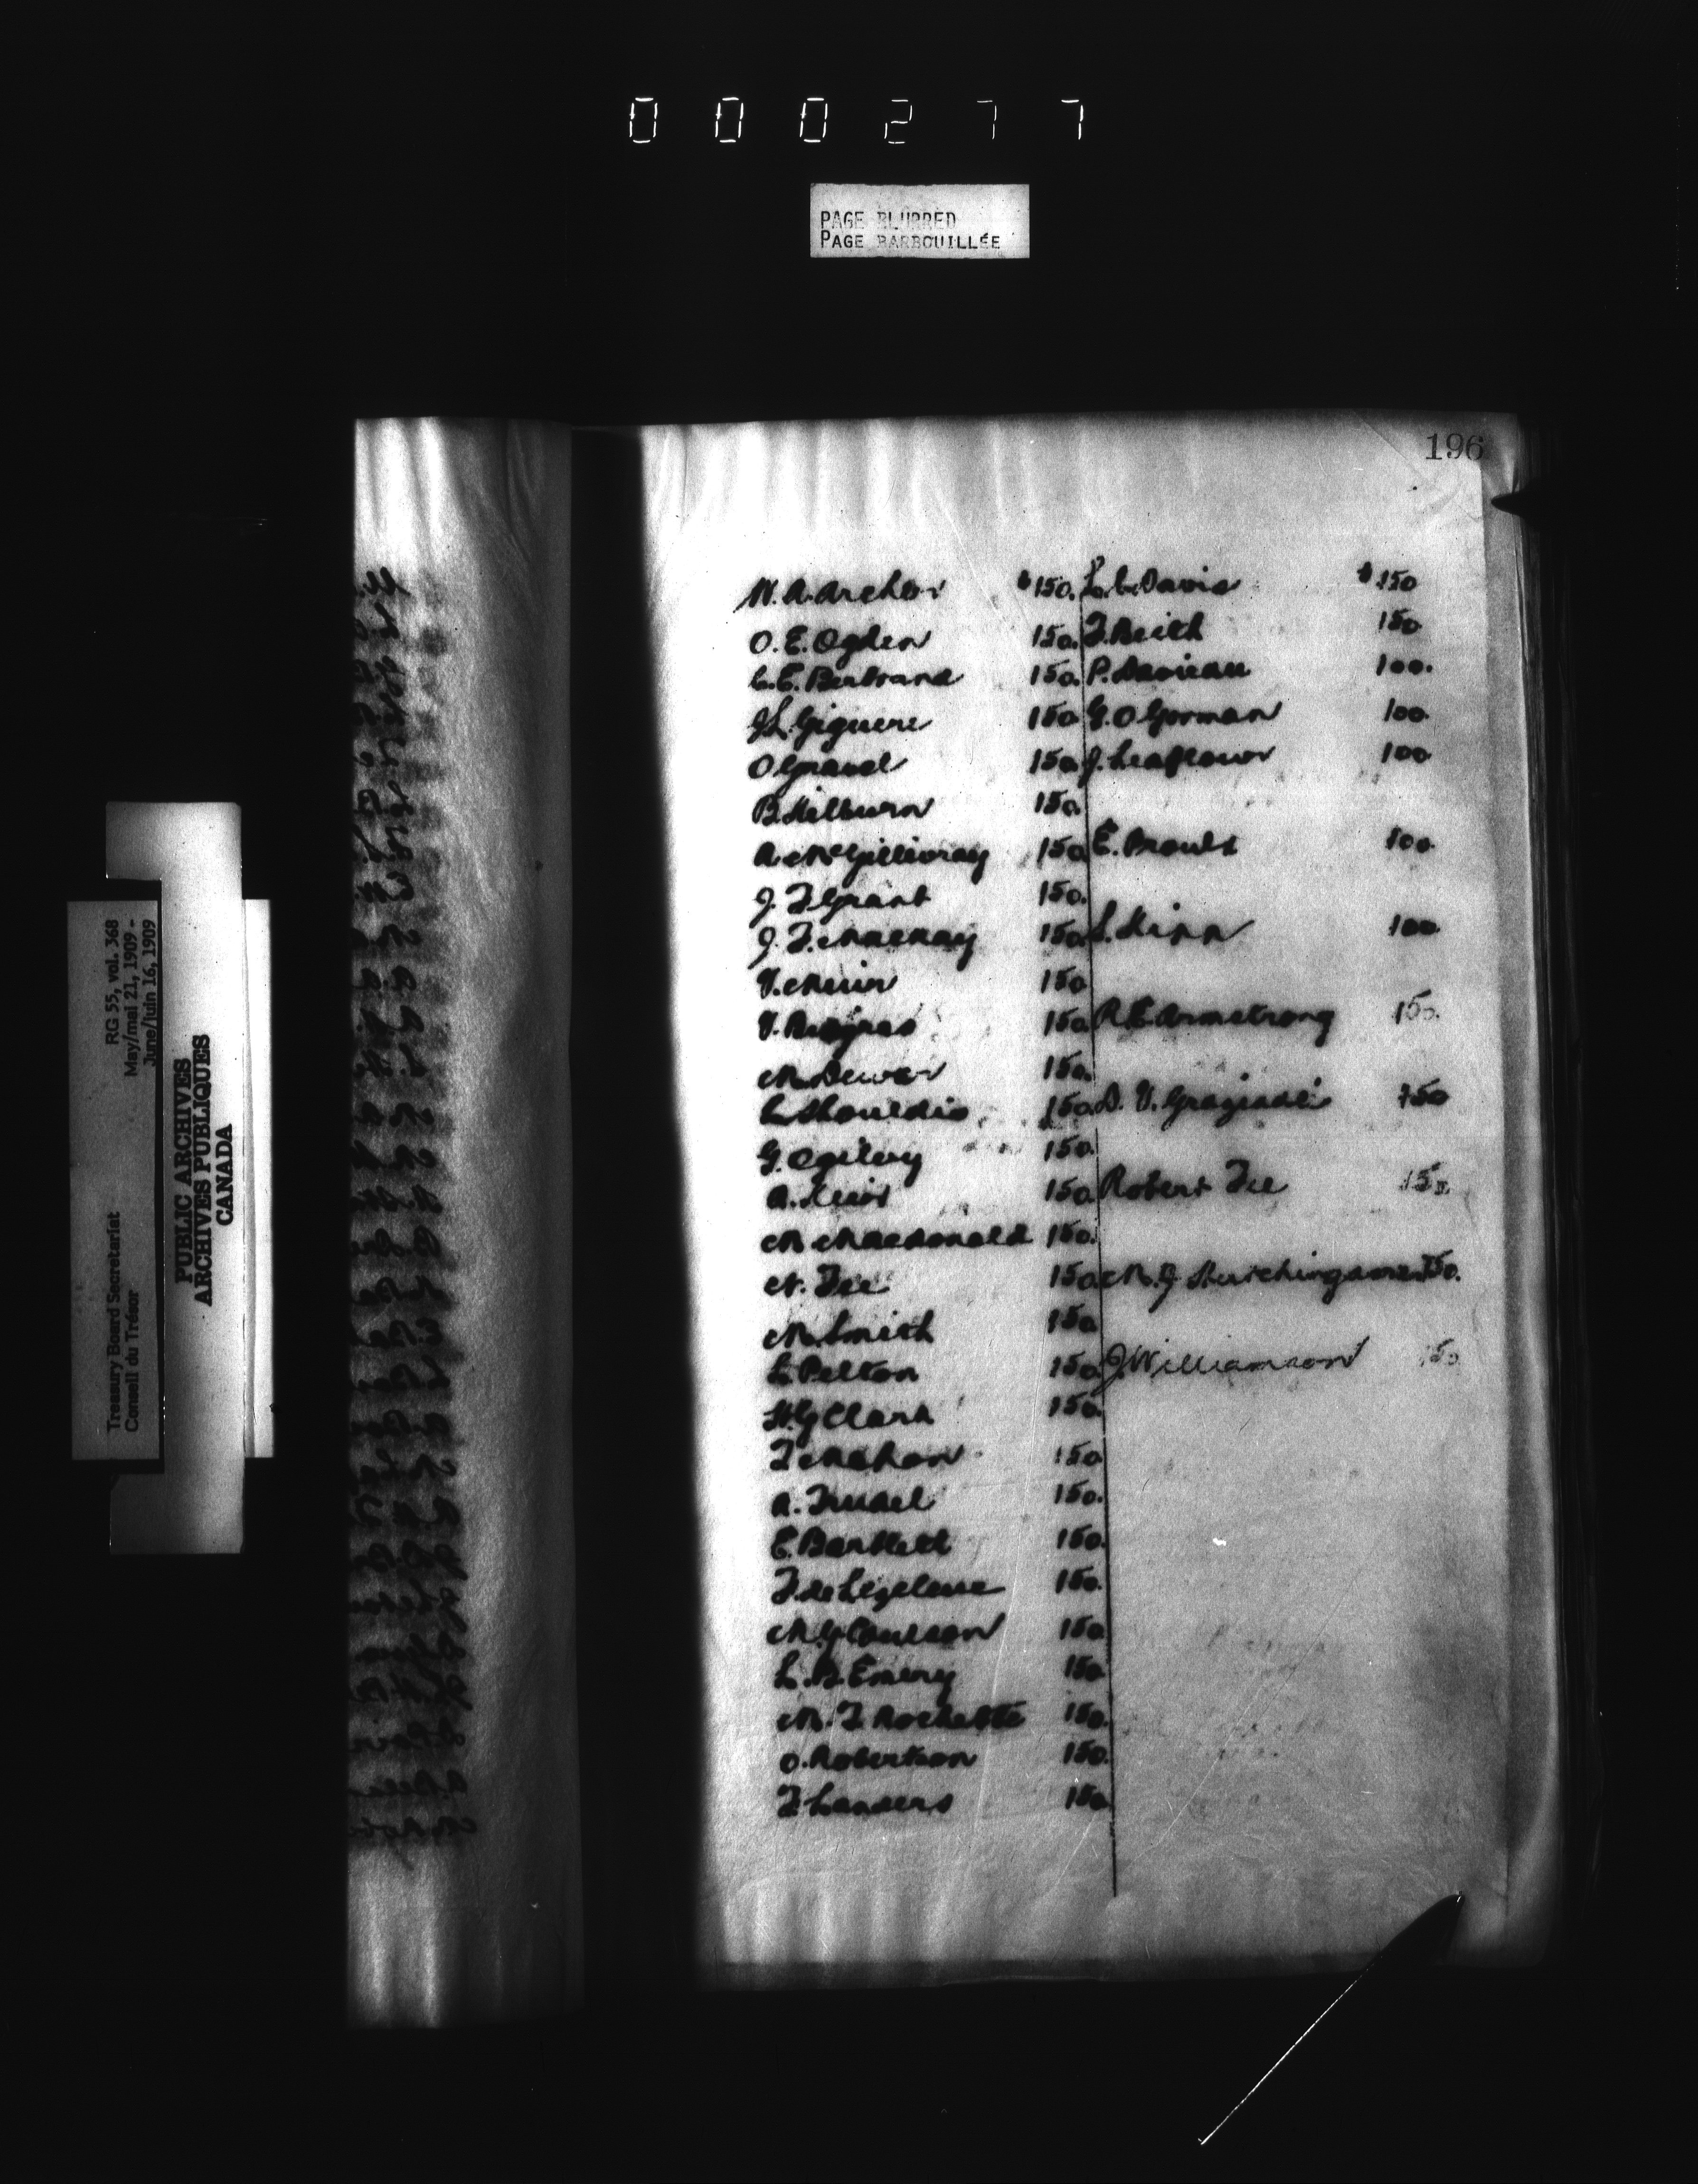 000277
PAGE BLURRED
PAGE BARBOUILLÉE
196
RG 55, vol. 368
May/mai 21, 1909 -
June/juin 16, 1909
Treasury Board Secretariat
Conseil du Trésor
PUBLIC ARCHIVES
ARCHIVES PUBLIQUES
CANADA
W. A. Archer $150.
O. E. Ogden 150.
C. E. Bertrand 150.
J L. Giguere 150
O Grand 150
B. Milburn 150.
A. McGillivray 150
J. F Grant 150.
J. F. Mackay 150
V. Muir 150
150
M. Dewar 150.
150
G. Ogilvy 150.
A. 150
M Macdonald 150.
N. Fee 150
M. Smith 150
L. Pelton 150
H. G Clark 150.
F Mahon 150
A. Trudel 150.
E. Bartlett 150.
150.
M. G Coulson 150
L. B. Emery 150
M. F. Rochette 150.
O. Robertson 150.
F. Landers 150
L. C. Davis $150
150
P. 100.
G. O Gorman 100.
J. Leaflour 100
E. Proulx 100.
100.
R. E. Armstrong 150.
D. V. Graziadei 150
Robert Fee 150.
150.
J. Williamson 150.